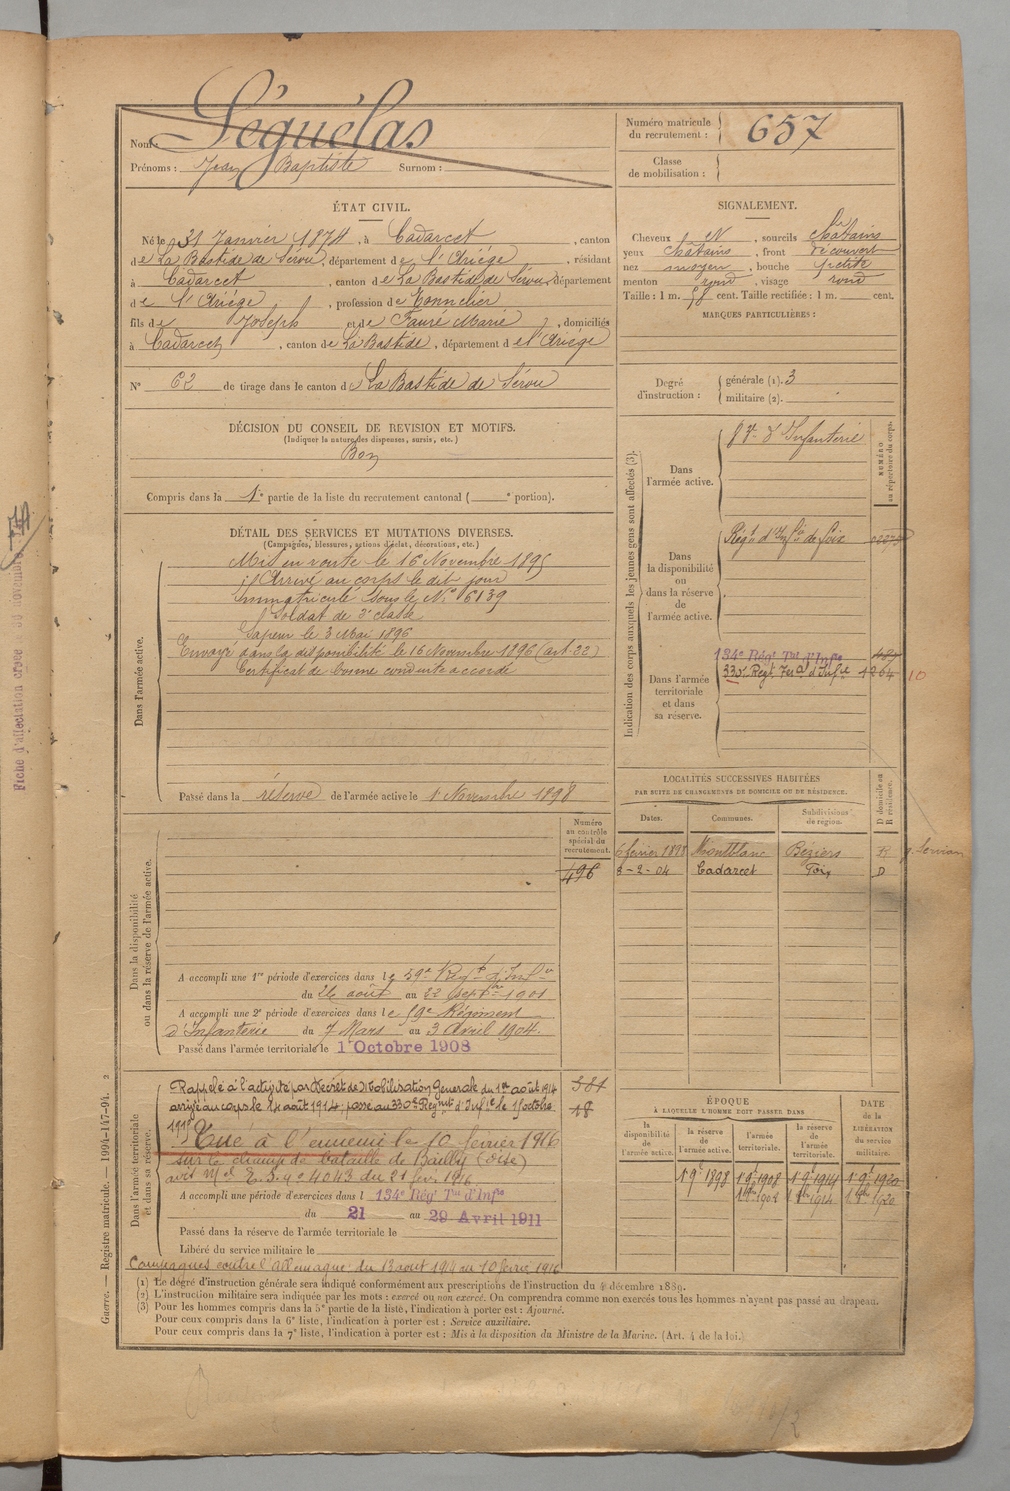 Nom : Séguélas
Prénoms : Jean Baptiste Surnom :
Numéro matricule du recrutement : 657
Classe de mobilisation :
ÉTAT CIVIL.
Né le 31 Janvier 1874, à Cadarcet, canton
de La Bastide de Sérou, département de l'Ariége, résidant
à Cadarcet, canton de La Bastide de Sérou, département
de l'Ariége, profession de Tonnelier
fils de Joseph et de Fauré Marie, domiciliés
à Cadarcet, canton de La Bastide, département de l'Ariége
N° 62 de tirage dans le canton de La Bastide de Sérou
SIGNALEMENT.
Cheveux N, sourcils châtains
yeux châtains, front découvert
nez moyen, bouche petite
menton rond, visage rond
Taille : 1 m. cent. Taille rectifiée : 1 m. cent.
MARQUES PARTICULIÈRES :
Degré d'instruction : générale (1). 3
militaire (2).
DÉCISION DU CONSEIL DE REVISION ET MOTIFS.
(Indiquer la nature des dispenses, sursis, etc.)
Bon
Compris dans la 1e partie de la liste du recrutement cantonal ( e portion).
DÉTAIL DES SERVICES ET MUTATIONS DIVERSES.
(Campagnes, blessures, actions d'éclat, décorations, etc.)
Dans l'armée active.
Mis en route le 16 Novembre 1895
Arrivé au corps le dit jour
Immatriculé sous le N° 6139
Soldat de 2e classe
Sapeur le 3 Mai 1896
Envoyé dans la disponibilité le 16 Novembre 1896 (art. 22)
Certificat de bonne conduite accordé
Passé dans la réserve de l'armée active le 1 Novembre 1898
Indication des corps auxquels les jeunes gens sont affectés (3).
NUMÉRO au répertoire du corps.
Dans l'armée active.
d'Infanterie
Dans la disponibilité ou dans la réserve de l'armée active.
Régt d'Infie de Foix
Dans l'armée territoriale et dans sa réserve.
134e Régt Tal d'Infie
330e Regt Teral d'Infie 1264 10
LOCALITÉS SUCCESSIVES HABITÉES
PAR SUITE DE CHANGEMENTS DE DOMICILE OU DE RÉSIDENCE.
Dates. Communes. Subdivisions de région. D domicile ou R résidence.
6 février 1898 Montblanc Béziers R p. Servian
3-2-04 Cadarcet Foix D
Dans la disponibilité ou dans la réserve de l'armée active.
Numéro au contrôle spécial du recrutement.
496
A accompli une 1re période d'exercices dans le 59e Régt d'Infie
du 26 août au 22 septre 1901
A accompli une 2e période d'exercices dans le 59e Régiment
d'Infanterie du 7 Mars au 3 Avril 1904.
Passé dans l'armée territoriale le 1 Octobre 1908
Dans l'armée territoriale et dans sa réserve.
Rappelé à l'activité par Décret de Mobilisation Generale du 1er août 1914
arrivé au corps le 14 août 1914. passé au 330e Regmt d'Infie le 15 octobre
1915 Tué à l'ennemi le 10 février 1916
sur le champ de bataille de Bailly (Oise)
avis Mel E.S. n° 4043 du 21 févr 1916
A accompli une période d'exercices dans l 134e Régt Tal d'Infie
du 21 au 29 Avril 1911
Passé dans la réserve de l'armée territoriale le
Libéré du service militaire le
Campagnes contre l'Allemagne du 13 août 1914 au 10 février 1916
381
18
ÉPOQUE
À LAQUELLE L'HOMME DOIT PASSER DANS
DATE de la LIBÉRATION du service militaire.
la disponibilité de l'armée active. la réserve de l'armée active. l'armée territoriale. la réserve de l'armée territoriale.
1 9e 1898 1 9e 1908 1 9e 1914 1 9e 1920
1908 1914 1920
(1) Le degré d'instruction générale sera indiqué conformément aux prescriptions de l'instruction du 4 décembre 1889.
(2) L'instruction militaire sera indiquée par les mots : exercé ou non exercé. On comprendra comme non exercés tous les hommes n'ayant pas passé au drapeau.
(3) Pour les hommes compris dans la 5e partie de la liste, l'indication à porter est : Ajourné.
Pour ceux compris dans la 6e liste, l'indication à porter est : Service auxiliaire.
Pour ceux compris dans la 7e liste, l'indication à porter est : Mis à la disposition du Ministre de la Marine. (Art. 4 de la loi.)
Guerre. — Registre matricule. — 1994-147-94. 2